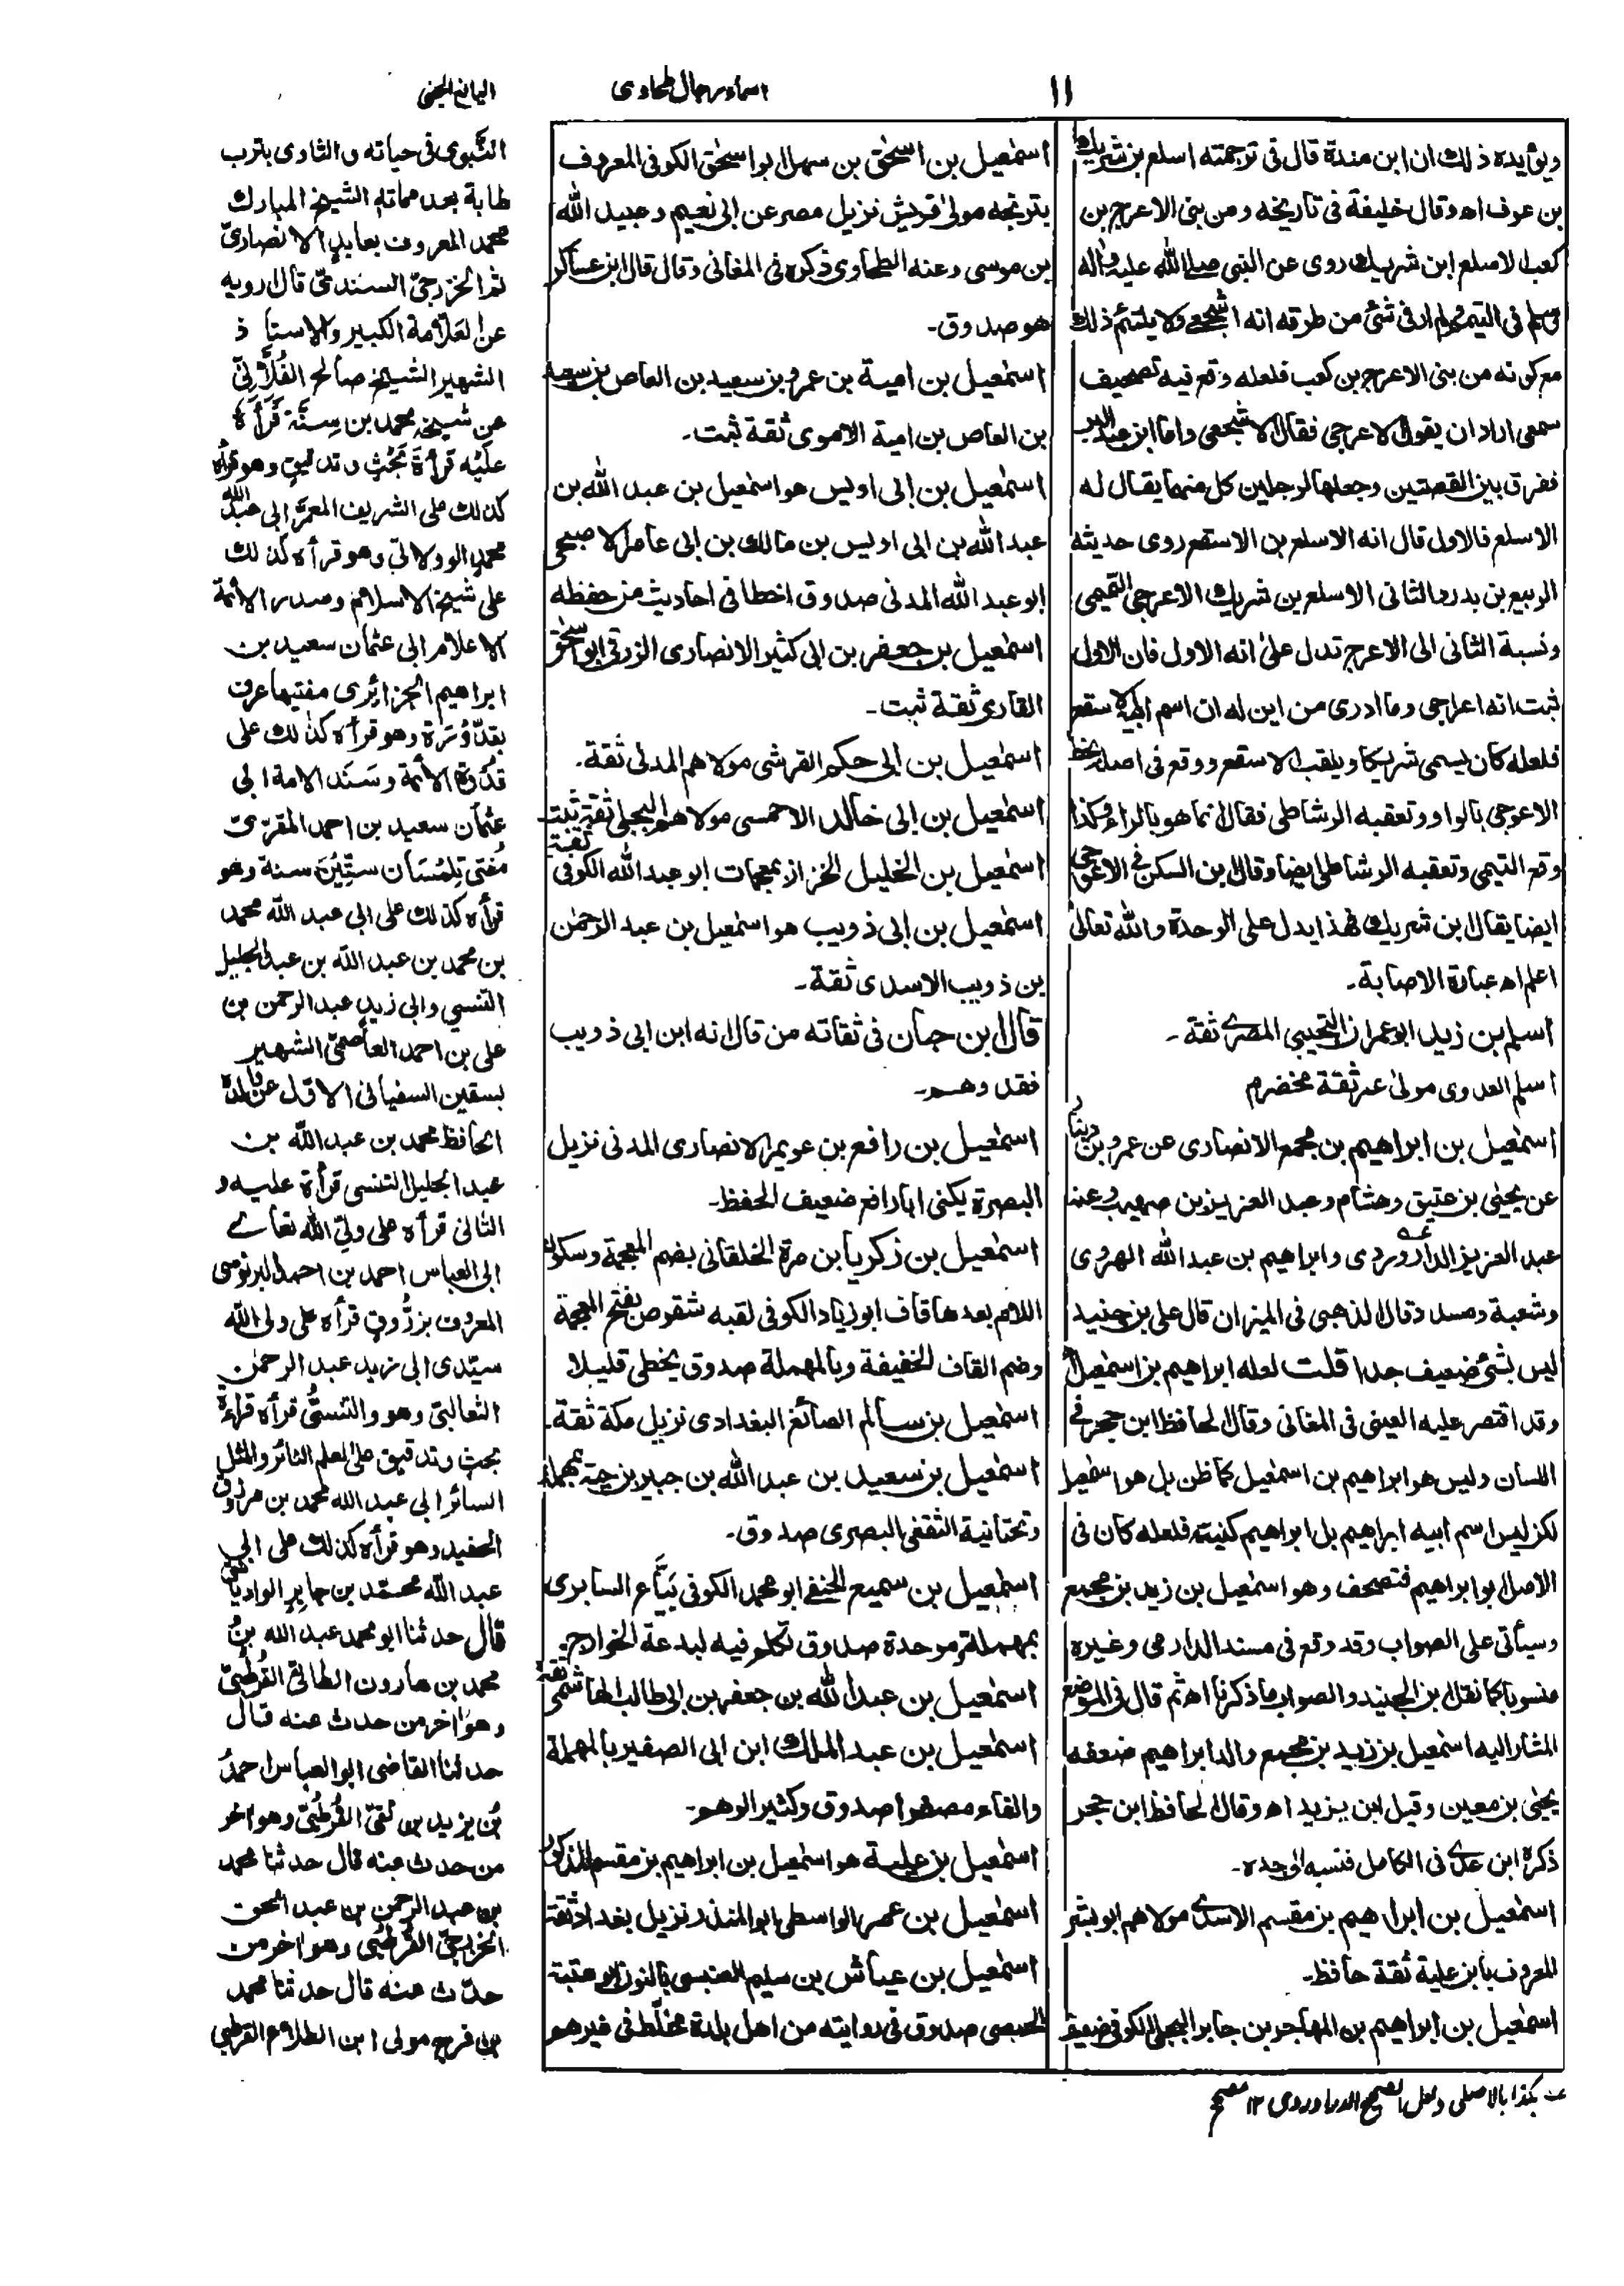 ١١
اسماء رجال طحاوى
اليانع الجنى
ويؤيده ذلك ان ابن مندة قال فى ترجمته اسلع بن شريك
بن عوف اه وقال خليفة فى تاريخه ومن بنى الاعرج بن
كعب الاسلع ابن شريك روى عن النبى صلى الله عليه وآله
وسلم فى التيمم ولم ار فى شئ من طرقه انه اشجعى ولا يلتئم ذلك
مع كونه من بنى الاعرج بن كعب فلعله وقع فيه تصحيف
سمعى اراد ان يقول الاعرجى فقال الاشجعى واما ابن عبد البر
ففرق بين القصتين وجعلها لرجلين كل منهما يقال له
الاسلع فالاول قال انه الاسلع بن الاسقع روى حديثه
الربيع بن بدر والثانى الاسلع بن شريك الاعرجى التميمى
ونسبة الثانى الى الاعرج تدل على انه الاول فان الاول
ثبت انه اعرجى وما ادرى من اين له ان اسم ابيه الاسقع
فلعله كان يسمى شريكا ويلقب الاسقع ووقع فى اصله بخط
الاعوجى بالواو وتعقبه الرشاطى فقال انما هو بالراء وكذا
وقع التيمى وتعقبه الرشاطى ايضا وقال ابن السكن فى الاعرجى
ايضا يقال ابن شريك فهذا يدل على الوحدة والله تعالى
اعلم اه عبارة الاصابة۔
اسلم بن زيد ابو عمران التجيبى المصرى ثقة۔
اسلم العدوى مولى عمر ثقة مخضرم
اسمعيل بن ابراهيم بن مجمع الانصارى عن عمرو بن دينار
عن يحيى بن عتيق وهشام وعبد العزيز بن صهيب وعنه
عبد العزيز الداروردى وابراهيم بن عبد الله الهروى
وشعبة ومسدد قال الذهبى فى الميزان قال على بن جنيد
ليس بشئ ضعيف جدا قلت لعله ابراهيم بن اسمعيل اه
وقد اقتصر عليه العينى فى المغانى وقال الحافظ ابن حجر فى
اللسان وليس هو ابراهيم بن اسمعيل كما ظن بل هو اسمعيل
لكن ليس اسم ابيه ابراهيم بل ابراهيم كنيته فلعله كان فى
الاصل ابو ابراهيم فتصحف وهو اسمعيل بن زيد بن مجمع
وسيأتى على الصواب وقد وقع فى مسند الدارمى وغيره
منسوبا كما نقل ابن الجنيد والصواب ما ذكرنا اه ثم قال فى الموضع
المشار اليه اسمعيل بن زيد بن مجمع والد ابراهيم ضعفه
يحيى بن معين وقيل ابن يزيد اه وقال الحافظ ابن حجر
ذكره ابن عدى فى الكامل فنسبه الى جده۔
اسمعيل بن ابراهيم بن مقسم الاسدى مولاهم ابو بشر
المعروف بابن علية ثقة حافظ۔
اسمعيل بن ابراهيم بن المهاجر بن جابر البجلى الكوفى ضعيف
عه هكذا بالاصل ولعل الصحيح الدراوردى ١٢ مصحح
اسمعيل بن اسحق بن سهل ابو اسحق الكوفى المعروف
بترنجه مولى قريش نزيل مصر عن ابى نعيم وعبيد الله
بن موسى وعنه الطحاوى ذكره فى المغانى وقال قال ابن عساكر
هو صدوق۔
اسمعيل بن امية بن عمرو بن سعيد بن العاص بن سعيد
بن العاص بن امية الاموى ثقة ثبت۔
اسمعيل بن ابى اويس هو اسمعيل بن عبد الله بن
عبد الله بن ابى اويس بن مالك بن ابى عامر الاصبحى
ابو عبد الله المدنى صدوق اخطا فى احاديث من حفظه
اسمعيل بن جعفر بن ابى كثير الانصارى الزرقى ابو اسحق
القارى ثقة ثبت۔
اسمعيل بن ابى حكيم القرشى مولاهم المدنى ثقة۔
اسمعيل بن ابى خالد الاحمسى مولاهم البجلى ثقة ثبت
اسمعيل بن الخليل الخزاز بمعجمات ابو عبد الله الكوفى ثقة
اسمعيل بن ابى ذويب هو اسمعيل بن عبد الرحمن
بن ذويب الاسدى ثقة۔
قال ابن حبان فى ثقاته من قال انه ابن ابى ذويب
فقد وهم۔
اسمعيل بن رافع بن عويمر الانصارى المدنى نزيل
البصرة يكنى ابا رافع ضعيف الحفظ۔
اسمعيل بن زكريا بن مرة الخلقانى بضم المعجمة وسكون
اللام بعدها قاف ابو زياد الكوفى لقبه شقوص بفتح المعجمة
وضم القاف الخفيفة وبالمهملة صدوق يخطى قليلا
اسمعيل بن سالم الصائغ البغدادى نزيل مكة ثقة۔
اسمعيل بن سعيد بن عبد الله بن جبير بن حية بمهملة
وتحتانية الثقفى البصرى صدوق۔
اسمعيل بن سميع الحنفى ابو محمد الكوفى بيّاع السابرى
بمهملة وموحدة صدوق تكلم فيه لبدعة الخوارج۔
اسمعيل بن عبد الله بن جعفر بن ابى طالب الهاشمى ثقة
اسمعيل بن عبد الملك ابن ابى الصفير بالمهملة
والفاء مصغرا صدوق وكثير الوهم۔
اسمعيل بن علية هو اسمعيل بن ابراهيم بن مقسم المذكور
اسمعيل بن عمر الواسطى ابو المنذر نزيل بغداد ثقة
اسمعيل بن عياش بن سليم العنسى بالنون ابو عتبة
الحمصى صدوق فى روايته من اهل بلدة مخلّط فى غيرهم
النّبوى فى حياته والثاوى بترب
طابة بعد مماته الشيخ المبارك
محمد المعروف بعابد الانصارىّ
ثم الخزرجىّ السندىّ قال ارويه
عن العلّامة الكبير والاستاذ
الشهير الشيخ صالح الفُلّانِىّ
عن شيخه محمد بن سِنَّة قرأة
عليه قرأةَ بَحْثٍ وتدقيق وهو قرأه
كذلك على الشريف المعمَّر ابى عبد الله
محمد الوولاتى وهو قرأه كذلك
على شيخ الاسلام وصدر الائمة
الاعلام ابى عثمان سعيد بن
ابراهيم الجزائرى مفتيها عرف
بقدّورَة وهو قرأه كذلك على
قدُوة الأئمة وسَنَد الامة ابى
عثمان سعيد بن احمد المقرّى
مُفتى تِلِمْسَان ستّين سنة وهو
قرأه كذلك على ابى عبد الله محمد
بن محمد بن عبد الله بن عبد الجليل
التنسى وابى زيد عبد الرحمن بن
على بن احمد العاصمىّ الشهير
بسقين السفيانى الاوّل عن والده
الحافظ محمد بن عبد الله بن
عبد الجليل التنسى قرأة عليه و
الثانى قرأه على ولىّ الله تعالى
ابى العباس احمد بن احمد البرنوسى
المعروف بزرّوق قرأه على ولى الله
سيّدى ابى زيد عبد الرحمن
الثعالبىّ وهو والتنسىُّ قرأه قراءة
بحث وتدقيق على العلم الثائر والمثل
السائر ابى عبد الله محمد بن مرزوق
الحفيد وهو قرأه كذلك على ابى
عبد الله محمّد بن جابر الواديآشى
قال حدثنا ابو محمد عبد الله بنُ
محمد بن هارون الطائىّ القُرطُبىّ
وهو اخر من حدث عنه قال
حدثنا القاضى ابو العباس احمدُ
بُن يزيد بن بَقىّ القُرطُبىّ وهو اخر
من حدث عنه قال حدثنا محمد
بن عبد الرحمن بن عبد الحق
الخزرجىّ القُرطُبى وهو اخر من
حدّث عنه قال حدثنا محمد
بن فرج مولى ابن الطلاع القرطبى